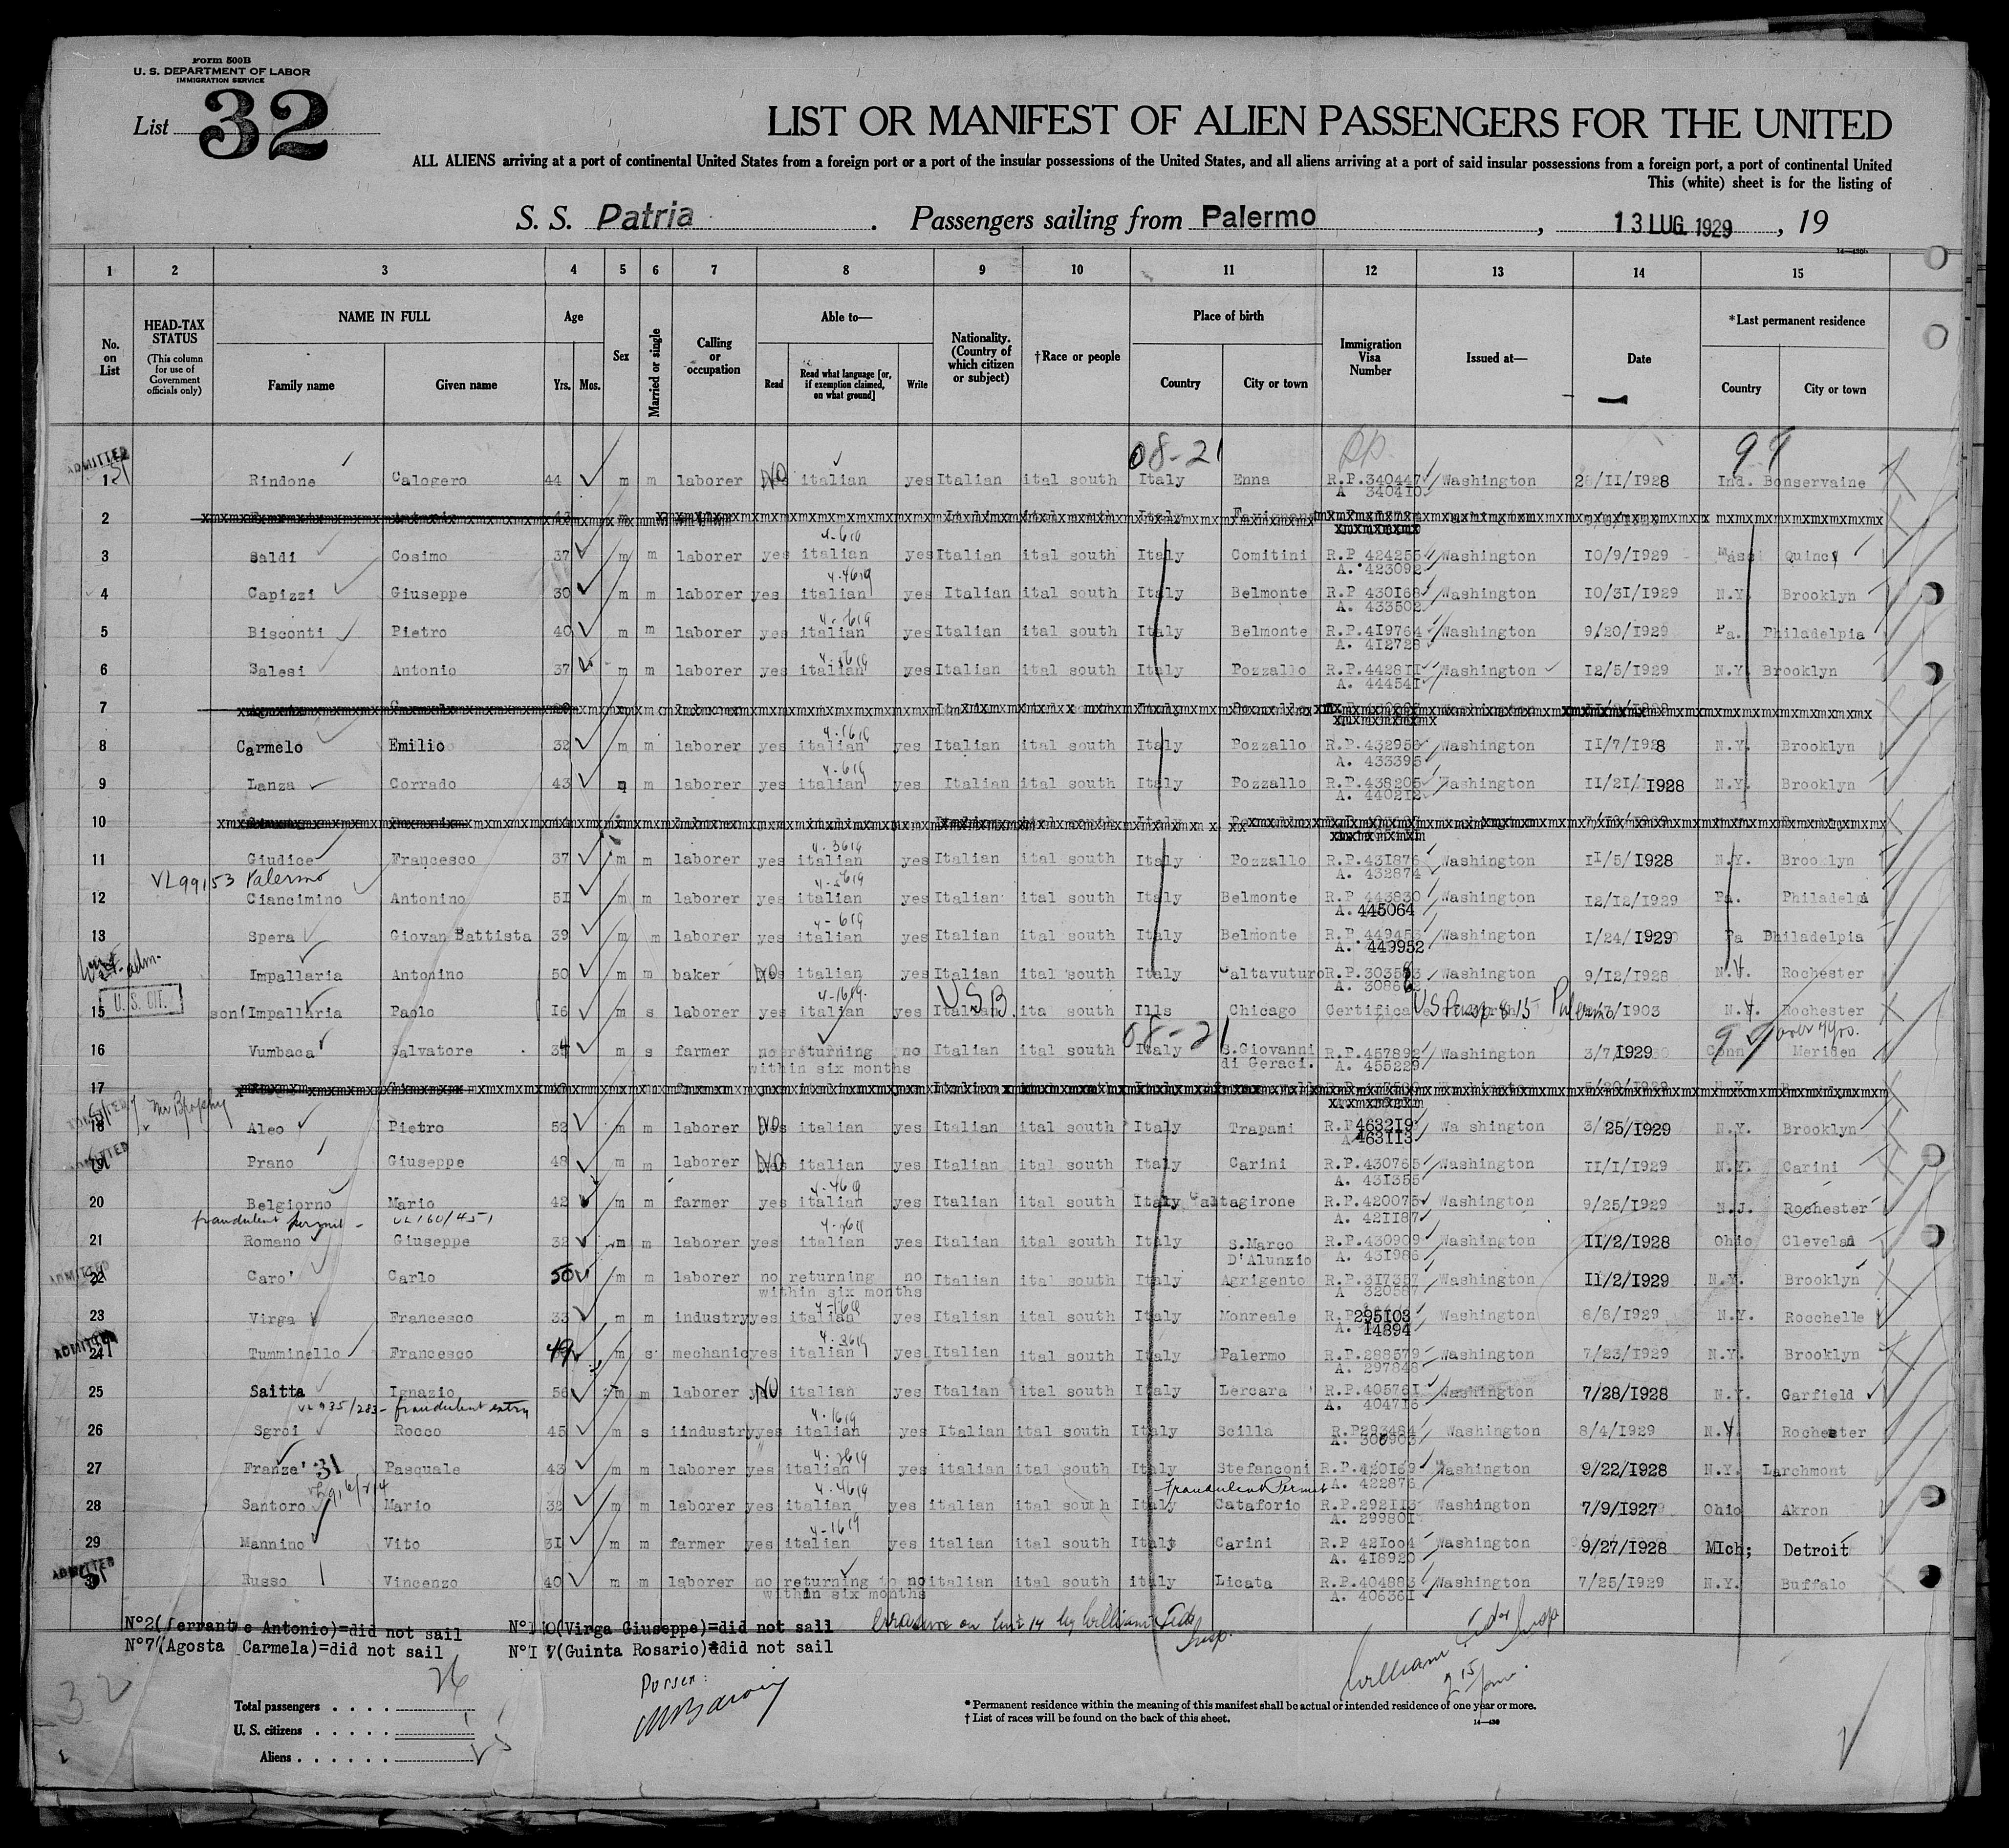 Form 500B
U. S. DEPARTMENT OF LABOR
IMMIGRATION SERVICE
List 32
LIST OR MANIFEST OF ALIEN PASSENGERS FOR THE UNITED
ALL ALIENS arriving at a port of continental United States from a foreign port or a port of the insular possessions of the United States, and all aliens arriving at a port of said insular possessions from a foreign port, a port of continental United
This (white) sheet is for the listing of
S. S. Patria . Passengers sailing from Palermo , 13 LUG. 1929 , 19
14—430b
1 2 3 4 5 6 7 8 9 10 11 12 13 14 15
No. on List
HEAD-TAX STATUS (This column for use of Government officials only)
NAME IN FULL Family name Given name
Age Yrs. Mos.
Sex
Married or single
Calling or occupation
Able to— Read Read what language [or, if exemption claimed, on what ground] Write
Nationality. (Country of which citizen or subject)
†Race or people
Place of birth Country City or town
Immigration Visa Number
Issued at—
Date
*Last permanent residence Country City or town
08-21 99
ADMITTED
1 Rindone Calogero 44 m m laborer NO italian yes Italian ital south Italy Enna R.P.340447 Washington 2 /II/1928 Ind. Bonservaine
A 340410
2
4-619
3 Saldi Cosimo 37 m m laborer yes italian yes Italian ital south Italy Comitini R.P.424255 Washington 10/9/1929 Mass Quincy
A. 423092
4-4619
4 Capizzi Giuseppe 30 m m laborer yes italian yes Italian ital south Italy Belmonte R.P 430168 Washington 10/31/1929 N.Y. Brooklyn
A. 433502
5 Bisconti Pietro 40 m m laborer yes italian yes Italian ital south Italy Belmonte R.P.419764 Washington 9/20/1929 Pa. Philadelpia
A. 412728
6 Salesi Antonio 37 m m laborer yes italian yes Italian ital south Italy Pozzallo R.P.442811 Washington 12/5/1929 N.Y. Brooklyn
A. 444541
7
4-1619
8 Carmelo Emilio 32 m m laborer yes italian yes Italian ital south Italy Pozzallo R.P.432956 Washington II/7/1928 N.Y. Brooklyn
A. 433395
4-619
9 Lanza Corrado 43 m m laborer yes italian yes Italian ital south Italy Pozzallo R.P.438205 Washington II/21/1928 N.Y. Brooklyn
A. 440212
10
4-3619
11 Giudice Francesco 37 m m laborer yes italian yes Italian ital south Italy Pozzallo R.P.431876 Washington II/5/1928 N.Y. Brooklyn
A. 432874
VL99153 Palermo
12 Ciancimino Antonino 51 m m laborer yes italian yes Italian ital south Italy Belmonte R.P 443830 Washington 12/12/1929 Pa. Philadelpi
A. 445064
4-619
13 Spera Giovan Battista 39 m m laborer yes italian yes Italian ital south Italy Belmonte R.P.449453 Washington 1/24/1929 Pa Philadelpia
A. 449952
Impallaria Antonino 50 m m baker NO italian yes Italian ital south Italy Caltavuturo R.P.303583 Washington 9/12/1928 N.Y. Rochester
U. S. CIT. 4-1619. U.S.B.
15 son( Impallaria Paolo 16 m s laborer yes italian yes ital south Ills Chicago Certificate US Pasp 815 Palermo 1903 N.Y. Rochester
08-21 99 over 4 yrs.
16 Vumbaca Salvatore 34 m s farmer no returning no Italian ital south Italy S.Giovanni R.P.457892 Washington 3/7/1929 Conn Meriden
within six months di Geraci. A. 455229
17
18 Aleo Pietro 52 m m laborer NO italian yes Italian ital south Italy Trapani R.P 463219 Wa shington 3/25/1929 N.Y. Brooklyn
A 463113
ADMITTED
19 Prano Giuseppe 48 m m laborer NO italian yes Italian ital south Italy Carini R.P.430765 Washington II/1/1929 N.Y. Carini
A. 431355
4-4619
20 Belgiorno Mario 42 m m farmer yes italian yes Italian ital south Italy Caltagirone R.P.420075 Washington 9/25/1929 N.J. Rochester
A. 421187
fraudulent permit - VL 160/451
21 Romano Giuseppe 32 m m laborer yes italian yes Italian ital south Italy S.Marco R.P.430909 Washington II/2/1928 Ohio Clevelan
D'Alunzio A. 431986
ADMITTED
22 Caro' Carlo 50 m m laborer no returning no Italian ital south Italy Agrigento R.P.317357 Washington II/2/1929 N.Y. Brooklyn
within six months A 320587
4-1619
23 Virga Francesco 33 m m industry yes italian yes Italian ital south Italy Monreale R.P 295103 Washington 8/8/1929 N.Y. Rocchelle
A. 14894
ADMITTED 4-3619
24 Tumminello Francesco 49 m s mechanic yes italian yes Italian ital south Italy Palermo R.P.288579 Washington 7/23/1929 N.Y. Brooklyn
A. 297848
25 Saitta Ignazio 56 m m laborer NO italian yes Italian ital south Italy Lercara R.P.405761 Washington 7/28/1928 N.Y. Garfield
A. 404716
VL 935/283 - fraudulent entry
4-1619
26 Sgroi Rocco 45 m s iindustry yes italian yes Italian ital south Italy Scilla R.P293484 Washington 8/4/1929 N.Y. Rochester
A. 300903
4-3619
27 Franze' 31 Pasquale 43 m m laborer yes italian yes italian ital south Italy Stefanconi R.P.420169 Washington 9/22/1928 N.Y. Larchmont
A. 422876
4-4619 fraudulent Permit
28 Santoro Mario 32 m m laborer yes italian yes italian ital south Italy Cataforio R.P.292113 Washington 7/9/1927 Ohio Akron
A. 299801
4-1619
29 Mannino Vito 31 m m farmer yes italian yes italian ital south Italy Carini R.P 421004 Washington 9/27/1928 MIch; Detroit
A. 418920
ADMITTED
Russo Vincenzo 40 m m laborer no returning to no italian ital south italy Licata R.P.404883 Washington 7/25/1929 N.Y. Buffalo
within six months A. 406361
N°2(ferrante Antonio)=did not sail N°10(Virga Giuseppe)=did not sail Erasure on line 14 by William
N°7(Agosta Carmela)=did not sail N°I7(Guinta Rosario)=did not sail Insp.
26
32
Total passengers . . . .
U. S. citizens . . . . . 1
Aliens . . . . . . 25
Purser:
William Insp
* Permanent residence within the meaning of this manifest shall be actual or intended residence of one year or more.
† List of races will be found on the back of this sheet.
14—430